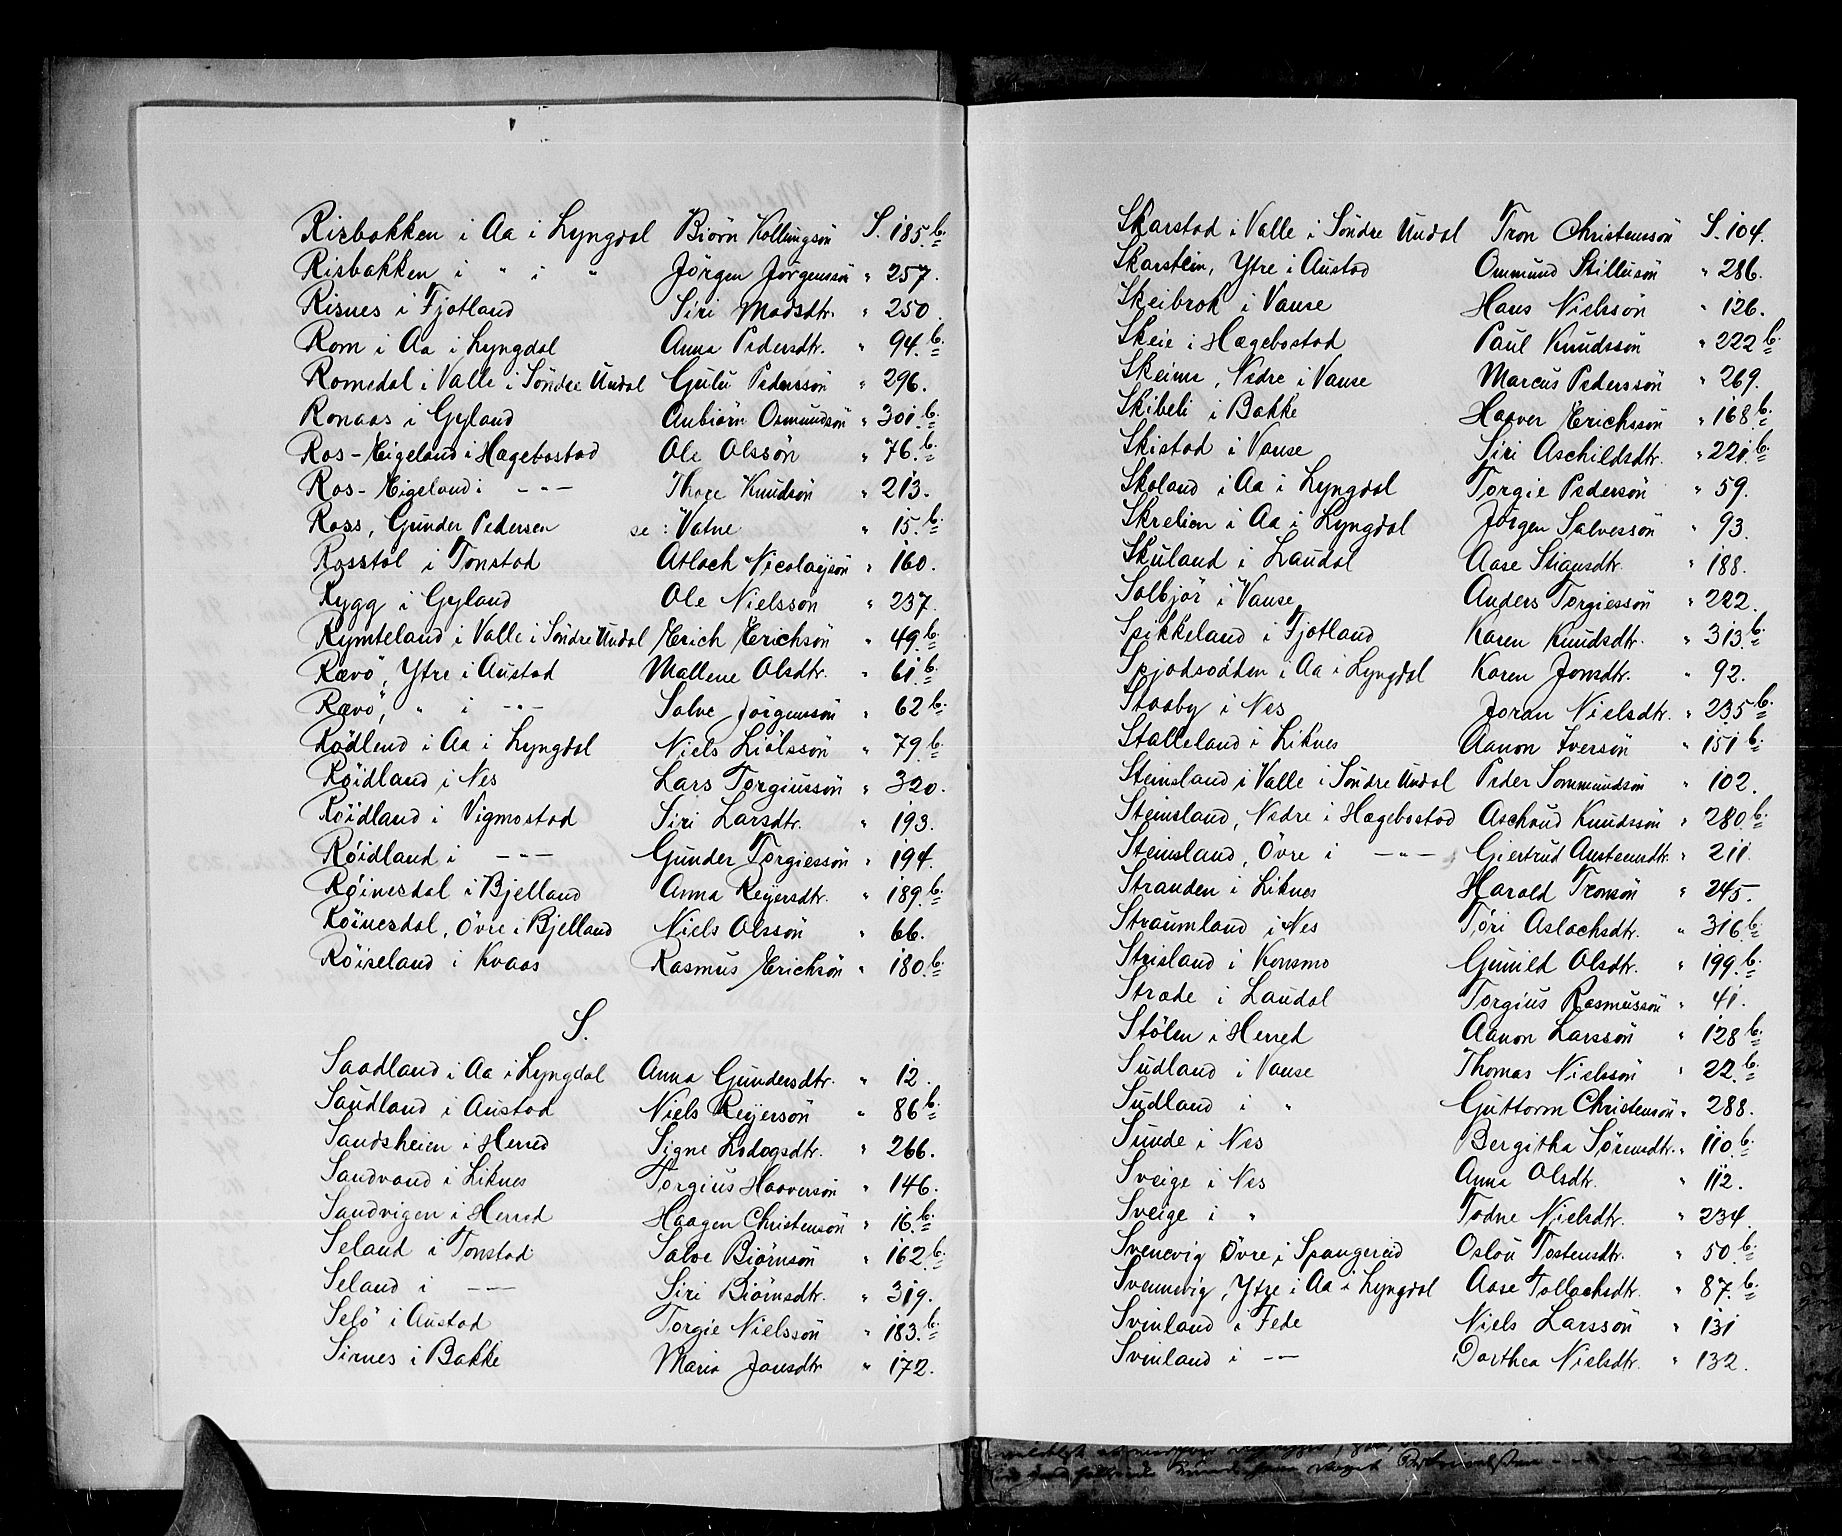 Risbakken i Aa i Lyngdal Biörn Kollungsön S. 185.b.
Risbakken i " i " Jörgen Jörgenssön " 257.
Risnes i Fjotland Siri Madsdtr. " 250.
Rom i Aa i Lyngdal Anna Pedersdtr. " 94.b.
Romedal i Valle i Söndre Undal Gulu Pederssön " 296.
Ronaas i Gyland Anbiörn Osmundsön " 301.b.
Ros-Eigeland i Hægebostad Ole Olssön " 76.b.
Ros-Eigeland i -"- Thore Knudsön " 213.
Ross, Gunder Pedersen se: Vatne " 15.b.
Rosstöl i Tonstad Atlach Nicolaysön " 160.
Rygg i Gyland Ole Nielssön " 237.
Rymteland i Valle i Söndre Undal Erich Erichsön " 49.b.
Rævö, Ytre i Austad Mallene Olsdtr. " 61.b.
Rævö, " i -"- Salve Jörgenssön " 62b.
Rödlend i Aa i Lyngdal Niels Liölssön " 79.b.
Röidland i Nes Lars Torgiussön " 320.
Röidland i Vigmostad Siri Larsdtr. " 193.
Röidland i -"- Gunder Torgiessön " 194.
Röinesdal i Bjelland Anna Reyersdtr. " 189.b.
Röinesdal, Övre i Bjelland Niels Olssön " 66.
Röiseland i Kvaas Rasmus Erichsön " 180.b.
S.
Saadland i Aa i Lyngdal Anna Gundersdtr. " 12.
Saudland i Austad Niels Reyersön " 86b.
Sandsheien i Herred Signe Lodogsdtr. " 266.
Sandvand i Liknes Torgius Haaversön " 146.
Sandvigen i Herred Haagen Christensön " 16.b.
Seland i Tonstad Salve Biörnsön " 162b.
Seland i -"- Siri Biörnsdtr. " 319.
Selö i Austad Torgie Nielssön " 183.b.
Sirnes i Bakke Maria Jansdtr " 172.
Skarstad i Valle i Söndre Undal Tron Christenssön S. 104.
Skarstein, Ytre i Austad Ommund Stillusön " 286.
Skeibrok i Vanse Hans Nielssön " 126.
Skeie i Hægebostad Paul Knudssön " 222b.
Skeime, Nedre i Vanse Marcus Pederssön " 269.
Skibeli i Bakke Haaver Erichssön " 168.b.
Skistad i Vanse Siri Aschildsdtr. " 221.b.
Skoland i Aa i Lyngdal Torgie Pedersön " 59.
Skrelien i Aa i Lyngdal Jörgen Salvessön " 93.
Skuland i Laudal Aase Stiansdtr. " 188.
Solbjör i Vanse Anders Torgiessön " 222.
Spikkeland i Fjotland Karen Knudsdtr. " 313.b.
Spjodsodden i Aa i Lyngdal Karen Jonsdtr. " 92.
Staaby i Nes Joran Nielsdtr. " 235.b.
Stalleland i Liknes Aanon Iversön " 151b.
Steinsland i Valle i Söndre Undal Peder Sommundsön " 102.
Steinsland, Nedre i Hægebostad Aschaud Knudssön " 280.b.
Steinsland, Övre i -"- Giertrud Austensdtr. " 211.
Stranden i Liknes Harald Tronsön " 245.
Straumland i Nes Töri Aslachsdtr. " 316.b.
Strisland i Konsmo Gunild Olsdtr. " 199.b.
Strøde i Laudal Torgius Rasmussön " 41.
Stölen i Herred Aanon Larssön " 128b.
Sudland i Vanse Thomas Nielssön " 22.b.
Sudland i " Guttorm Christensön " 288.
Sunde i Nes Bergitha Sörensdtr. " 110.b.
Sveige i Nes Anna Olsdtr. " 112.
Sveige i " Todne Nielsdtr. " 234.
Svenevig Övre, i Spangereid Oslou Tostensdtr. " 50.b.
Svennevig, Ytre i Aa i Lyngdal Aase Tollachsdtr. " 87.b.
Svinland i Fede Niels Larssön " 131
Svinland i -"- Dorthea Nielsdtr. " 132.